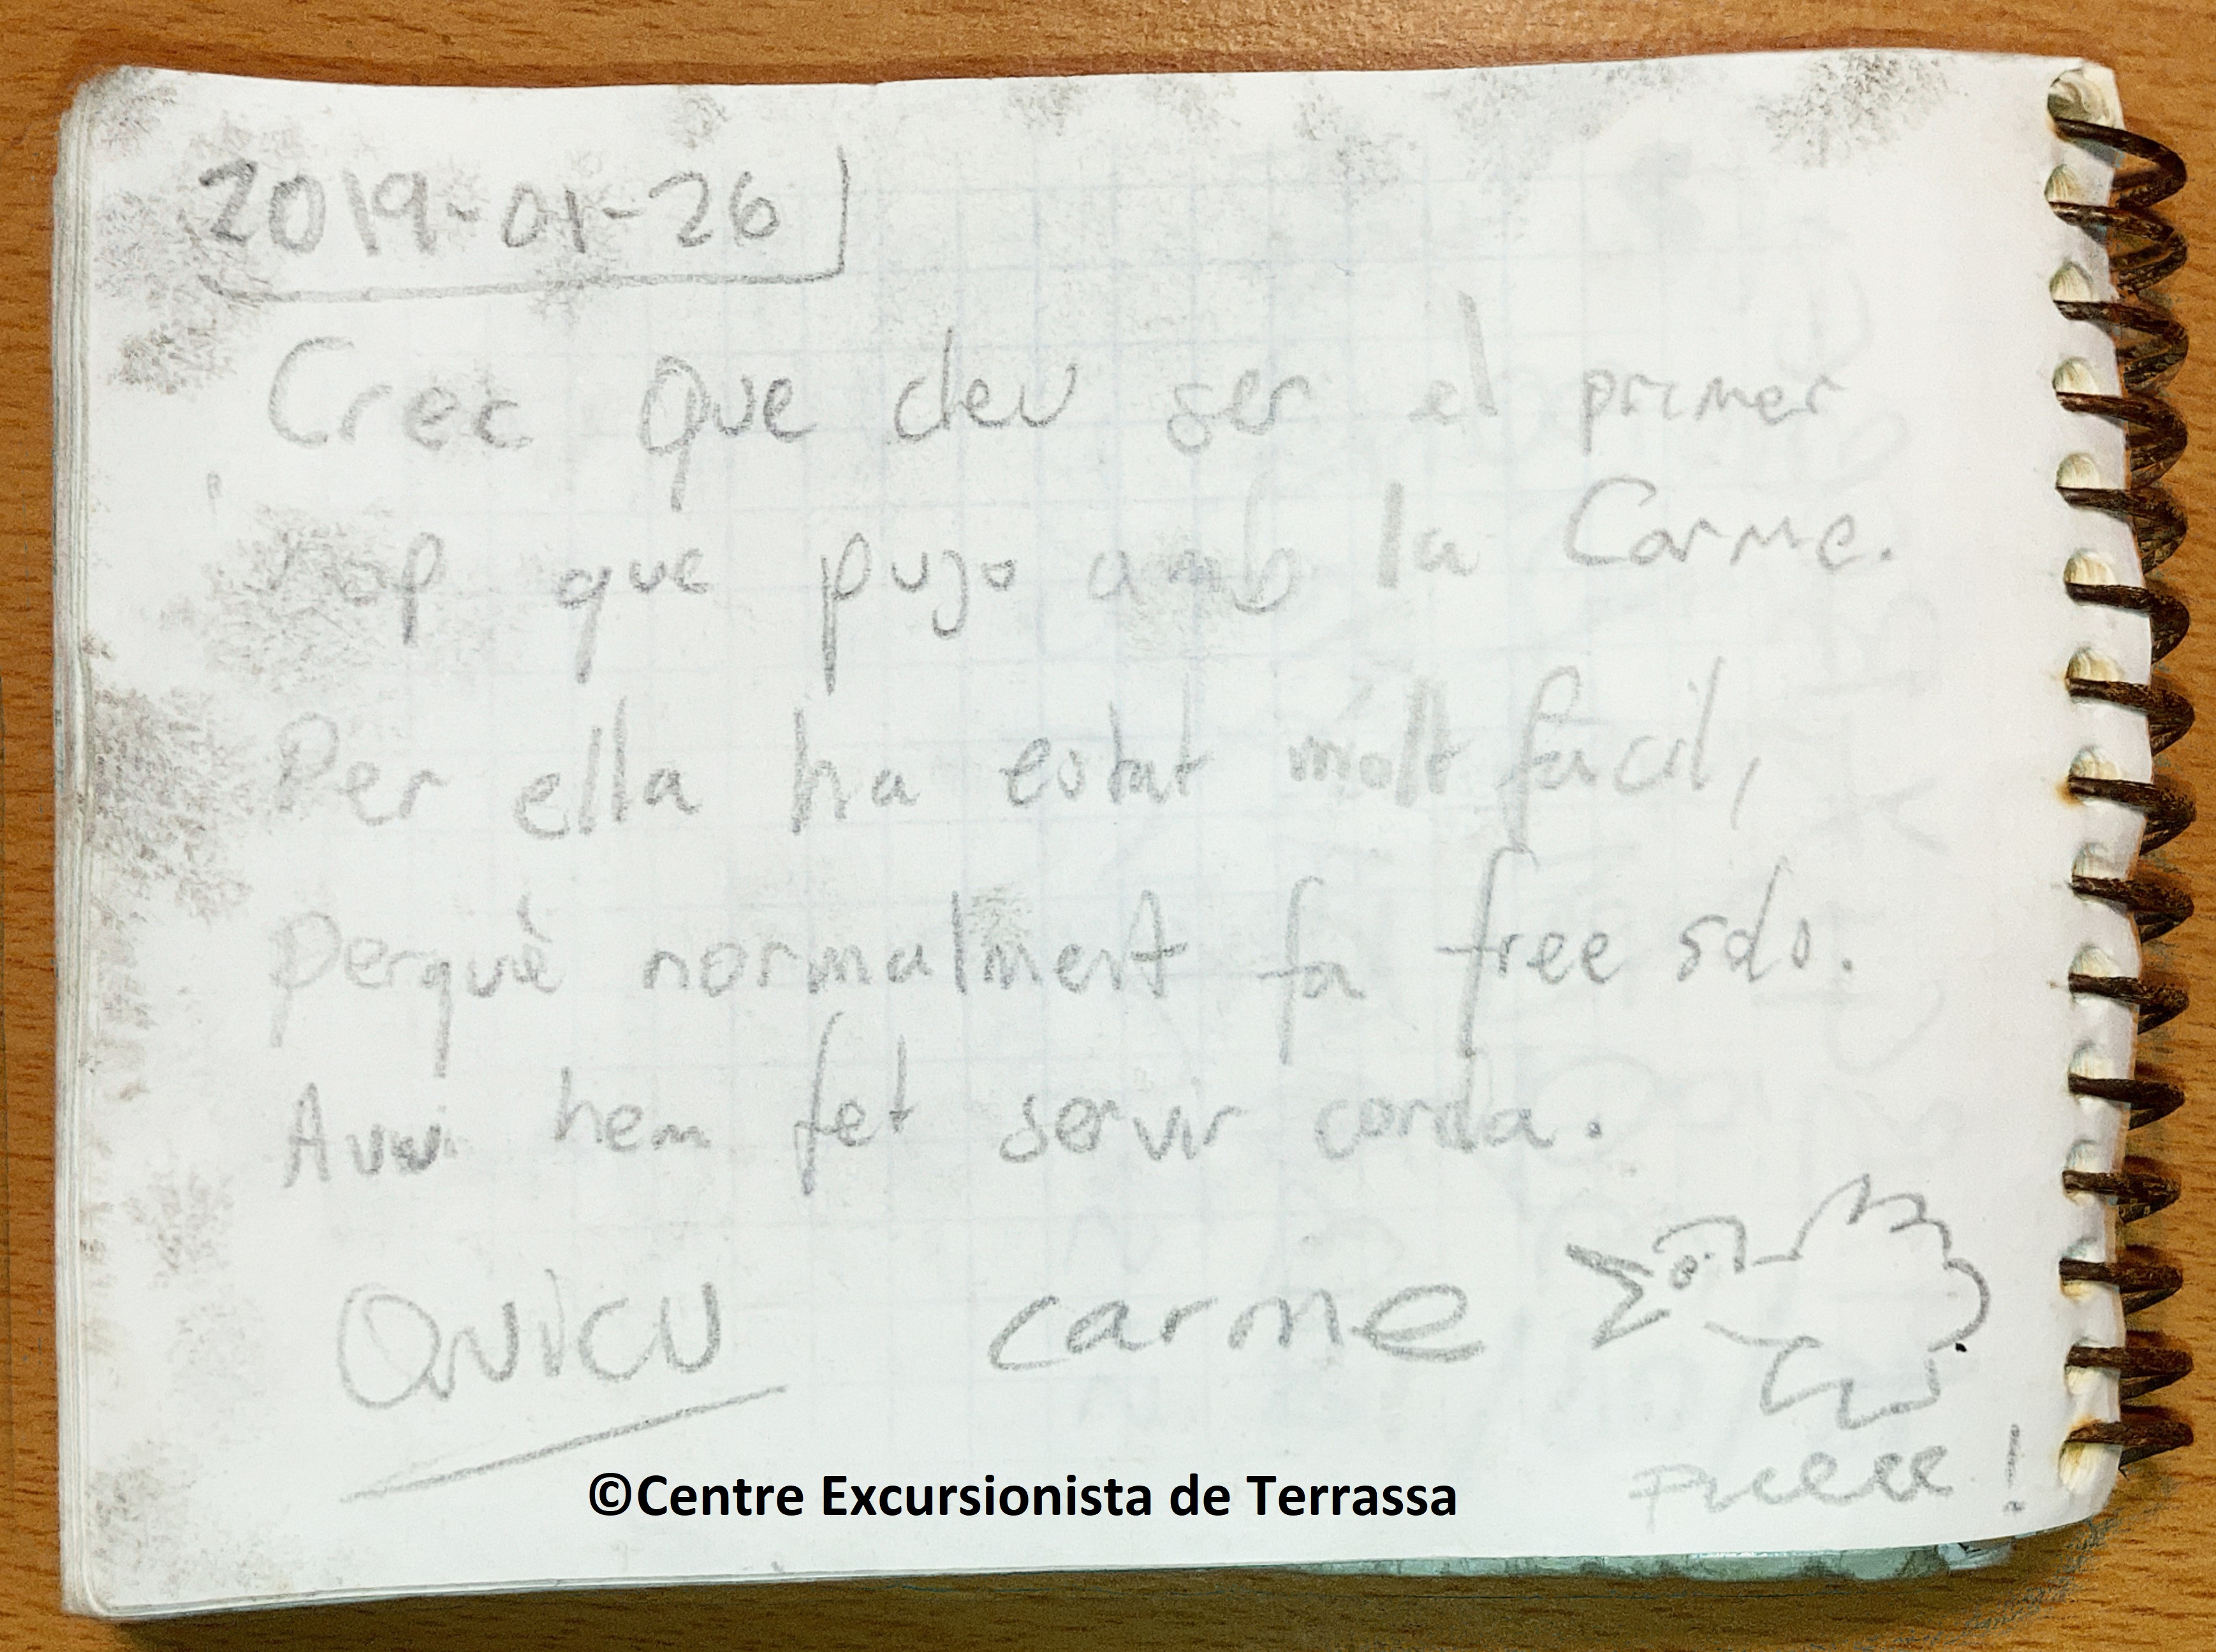 2019-01-26
Crec que deu ser el primer
cop que pujo amb la Carme.
Per ella ha estat molt fàcil,
perquè normalment fa free solo.
Avui hem fet servir corda.
QUICU carme
©Centre Excursionista de Terrassa